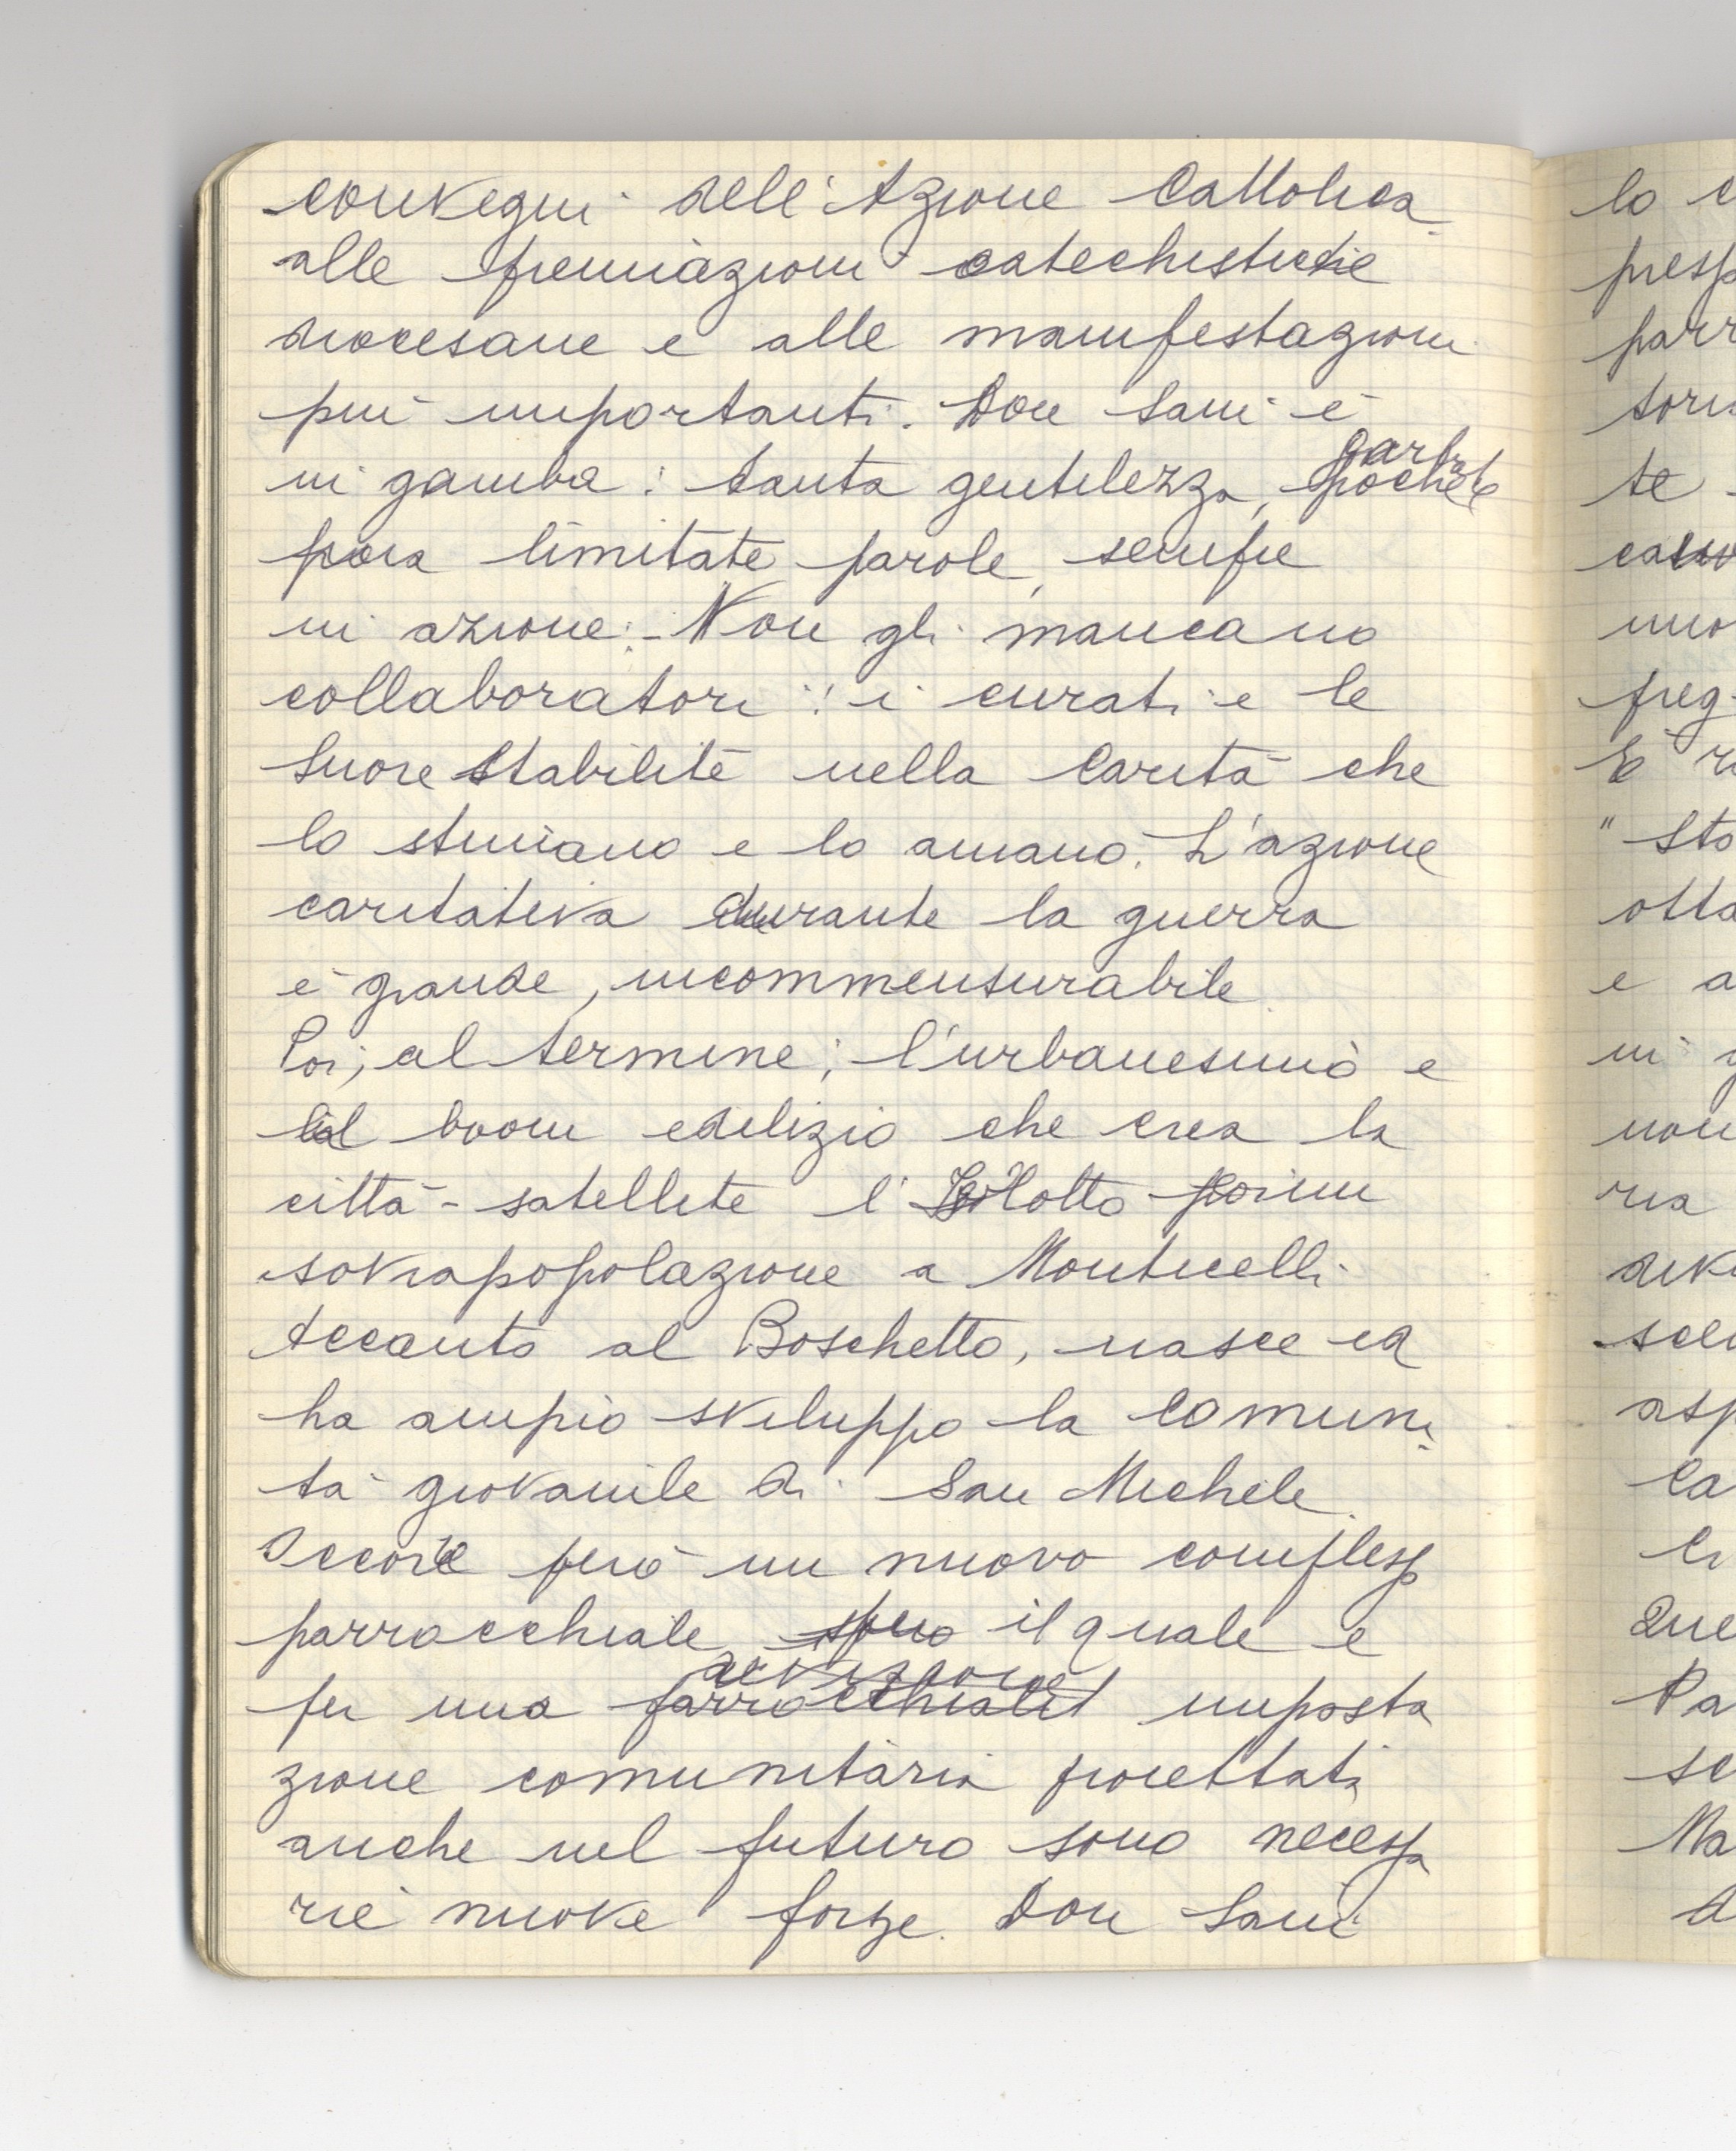 convegni dell'Azione Cattolica
alle premiazioni catechistiche
diocesane e alle manifestazioni
più importanti. Don Sani è
in gamba: tanta gentilezza, garbo
limitate parole, sempre
in azione. - Non gli mancano
collaboratori: i curati e le
Suore Stabilite nella Carità che
lo stimano e lo amano. L'azione
caritativa durante la guerra
è grande, incommensurabile.
Poi, al termine, l'urbanesimo e
il boom edilizio che crea la
città-satellite l'Isolotto
sovrapopolazione a Monticelli
Accanto al Boschetto, nasce ed
ha ampio sviluppo la comuni
tà giovanile di San Michele.
Occorre però un nuovo complesso
parrocchiale, il quale e
per una imposta
zione comunitaria proiettata
anche nel futuro sono necessa
rie nuove forze. Don Sani
lo
presp
parr
te
non
"Sto
otta
e a
in
Ca
Que
Pa
se
Ma